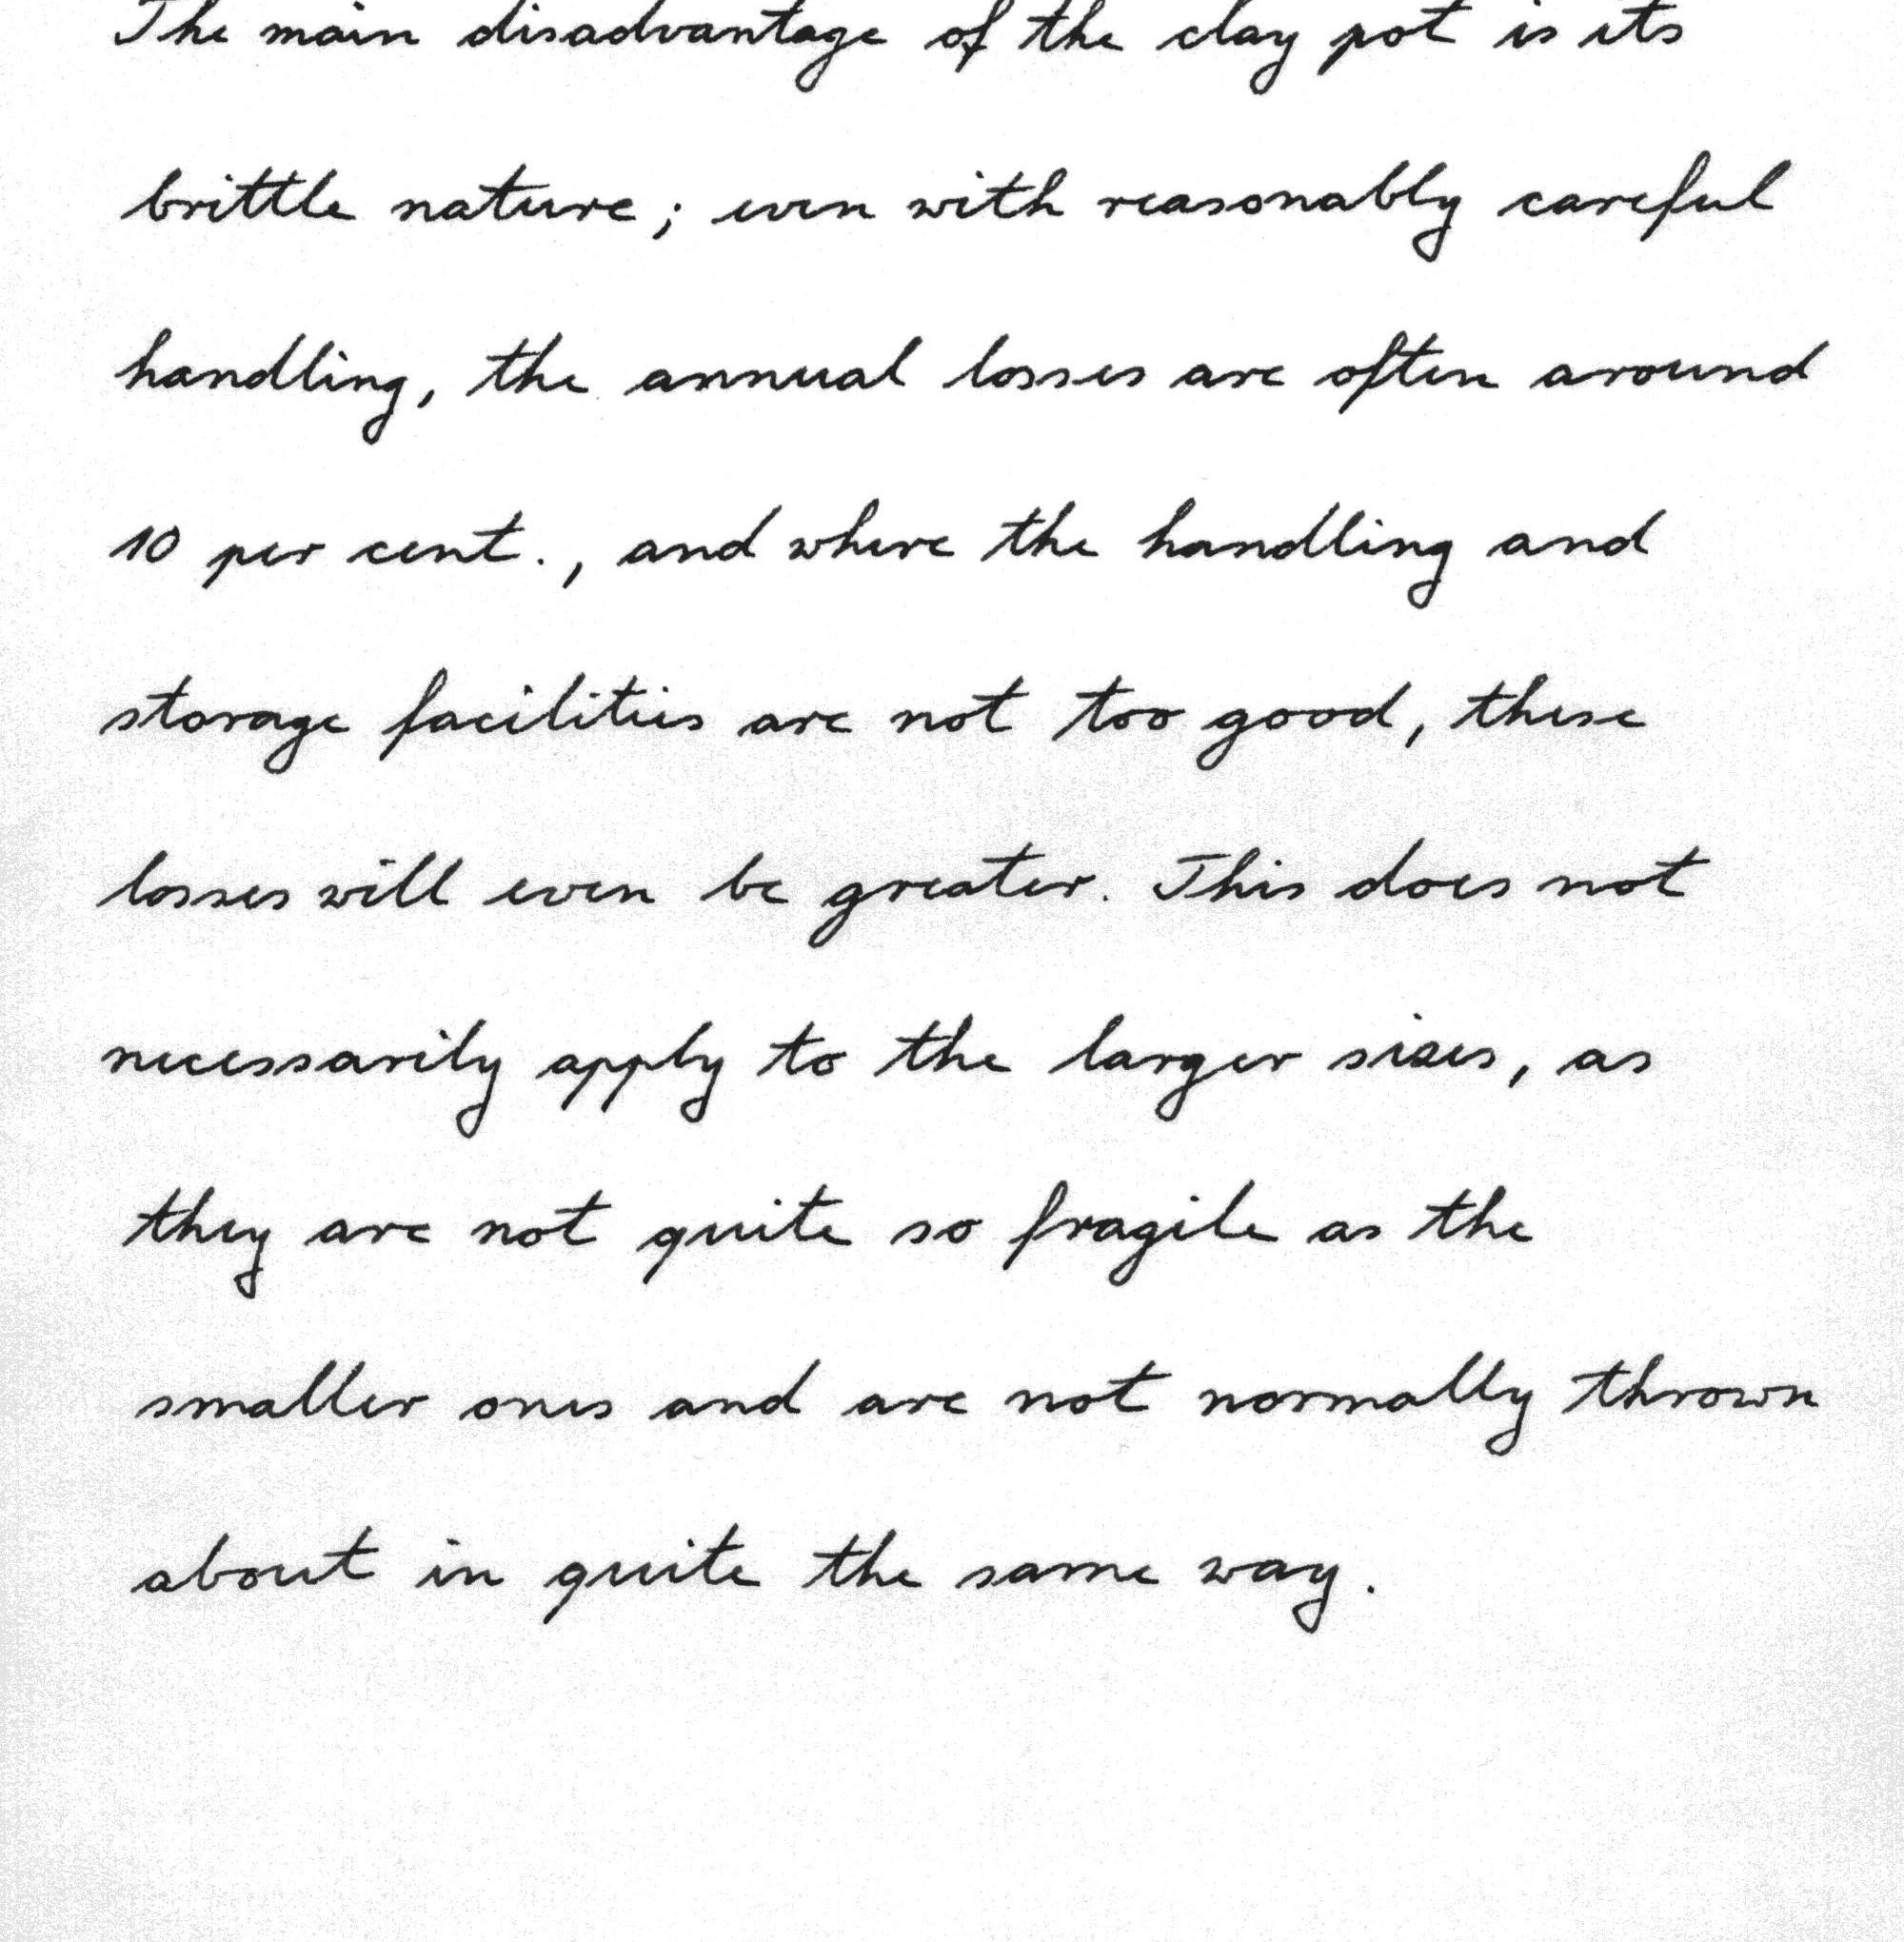 The main disadvantage of the clay pot is its
brittle nature; even with reasonably careful
handling, the annual losses are often around
10 per cent., and where the handling and
storage facilities are not too good, these
losses will even be greater. This does not
necessarily apply to the larger sizes, as
they are not quite so fragile as the
smaller ones and are not normally thrown
about in quite the same way.